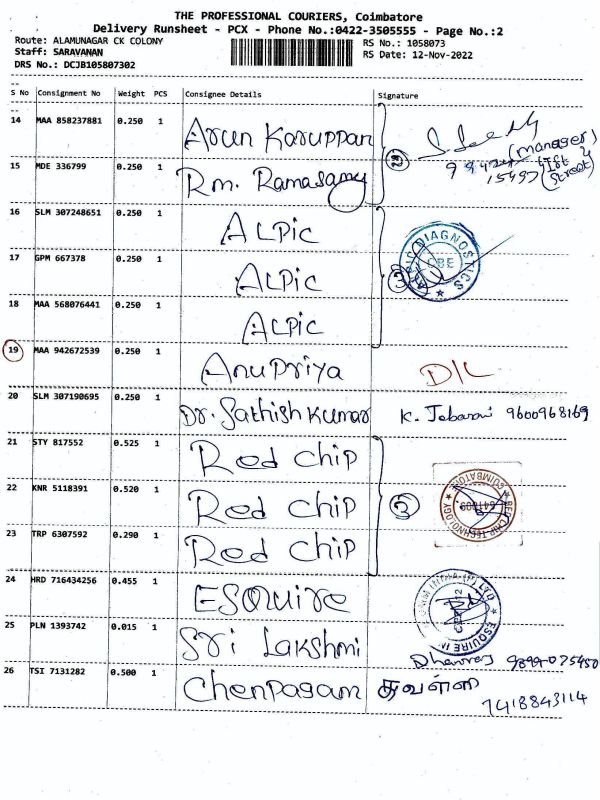 THE PROFESSIONAL COURIERS, Coimbatore
Delivery Runsheet - PCX - Phone No.:0422-3505555 - Page No.:2
Route: ALAMUNAGAR CK COLONY
Staff: SARAVANAN
DRS No.: DCJB105807302
RS No.: 1058073
RS Date: 12-Nov-2022
S No Consignment No Weight PCS Consignee Details Signature
14 MAA 858237881 0.250 1 Arun Karuppan
(manager)
15 MDE 336799 0.250 1 Rm. Ramasamy
16 SLM 307248651 0.250 1 ALPic
17 GPM 667378 0.250 1 ALPic ③
ALPIC DIAGNOSTICS CBE
18 MAA 568076441 0.250 1 ALPic
19 MAA 942672539 0.250 1 Anupriya D/L
20 SLM 307190695 0.250 1 Dr. Sathish Kumar K. 9600968169
21 STY 817552 0.525 1 Red chip
22 KNR 5118391 0.520 1 Red chip ③
RED CHIP TECHNOLOGY COIMBATORE
23 TRP 6307592 0.290 1 Red chip
24 HRD 716434256 0.455 1 ESQUIRE
25 PLN 1393742 0.015 1 Sri Lakshmi
26 TSI 7131282 0.500 1 Chenpagam
7418843114